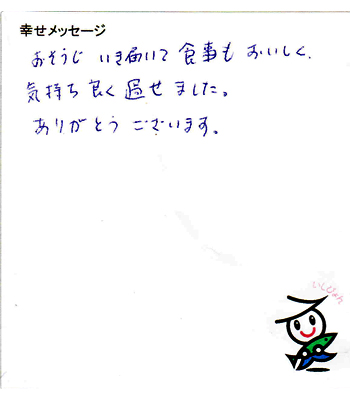 幸せメッセージ
おそうじ いき届いて 食事も おいしく、
気持ち良く 過せました。
ありがとう ございます。
いしぴょん